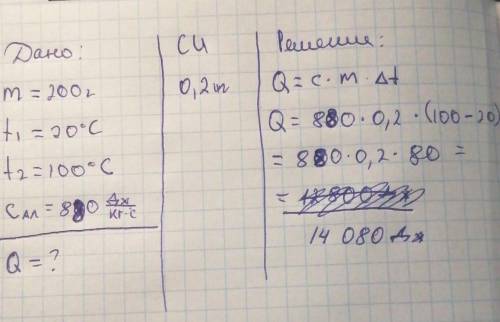 Дано:
m = 200г
t₁ = 20°C
t₂ = 100°C
Cал = 880 Дж/кг·С
Q = ?
СИ
0,2 кг
Решение:
Q = c · m · Δt
Q = 880 · 0,2 · (100-20)
= 880 · 0,2 · 80 =
=
14 080 Дж